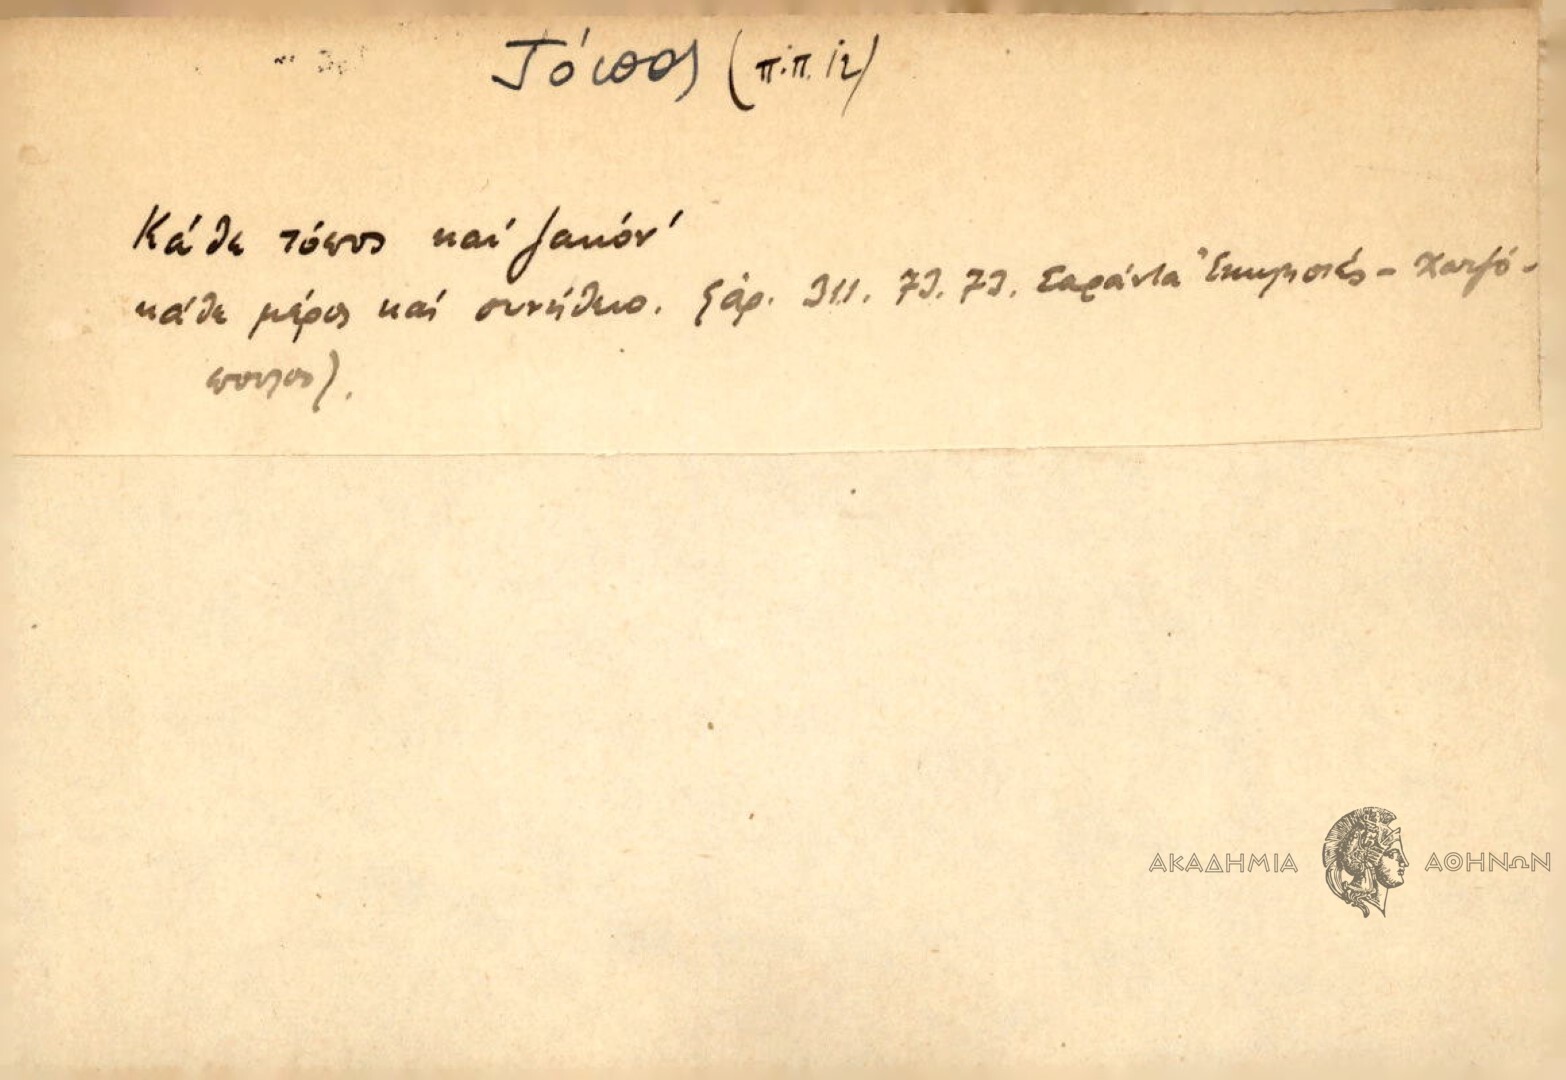 Τόπος (π.π. 12)
Κάθε τόπος καί ζακόν'
κάθε μέρος καί συνήθειο. (άρ. 311. 73. 73. Σαράντα Ἐκκλησιές - Χατζό-
πουλος).
ΑΚΑΔΗΜΙΑ ΑΘΗΝΩΝ